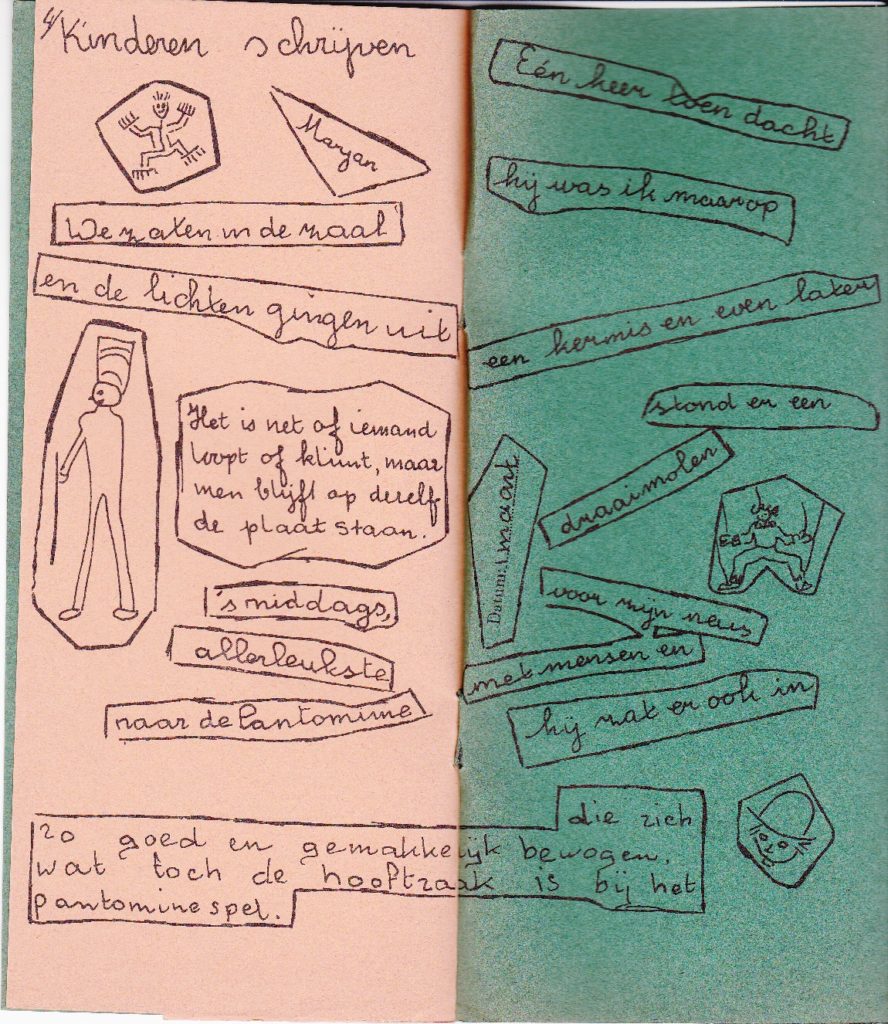 4/
Kinderen schrijven
Marjan
We zaten in de zaal
en de lichten gingen uit
Het is net of iemand
loopt of klimt, maar
men blijft op dezelf-
de plaat staan.
's middags,
allerleukste
naar de Pantomime
Eén keer toen dacht
hij was ik maar op
een kermis en even later
stond er een
draaimolen
Datum: 1 maart
voor zijn neus
met mensen en
hij zat er ook in
die zich
zo goed en gemakkelijk bewogen.
wat toch de hooftzaak is bij het
pantomine spel.